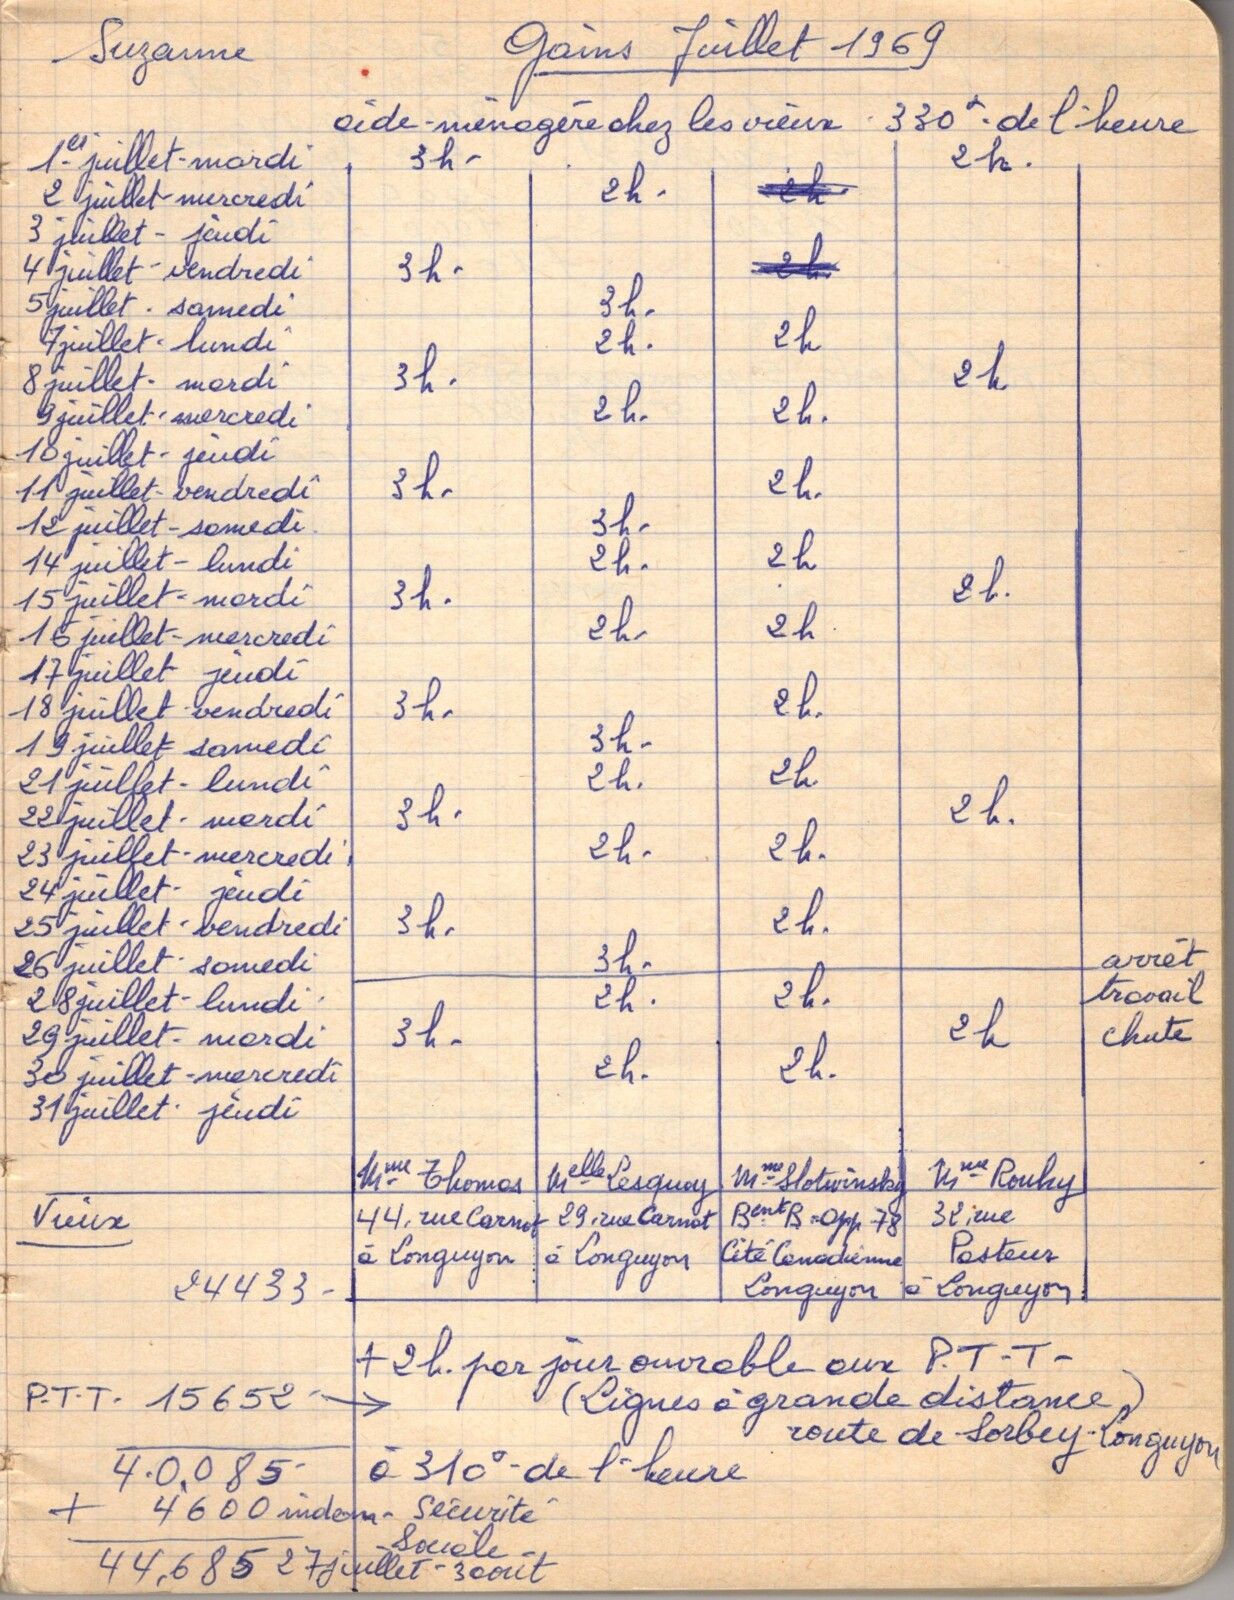 Suzanne Gains Juillet 1969
aide-ménagère chez les vieux. 330°-de l'heure
1er juillet-mardi 3h- 2h.
2 juillet-mercredi 2h. 2h.
3 juillet- jeudi
4 juillet-vendredi 3h. 2h.
5 juillet. samedi 3h.
7 juillet. lundi 2h. 2h
8 juillet- mardi 3h. 2h
9 juillet-mercredi 2h. 2h.
10 juillet- jeudi
11 juillet-vendredi 3h. 2h.
12 juillet-samedi 3h-
14 juillet- lundi 2h. 2h
15 juillet-mardi 3h. 2h.
16 juillet-mercredi 2h. 2h
17 juillet jeudi
18 juillet vendredi 3h. 2h.
19 juillet samedi 3h-
21 juillet- lundi 2h. 2h.
22 juillet- mardi 3h. 2h.
23 juillet-mercredi 2h. 2h.
24 juillet- jeudi
25 juillet-vendredi 3h. 2h.
26 juillet samedi 3h- arrêt
28 juillet-lundi 2h. 2h. travail
29 juillet- mardi 3h- 2h chute
30 juillet-mercredi 2h. 2h.
31 juillet. jeudi
Mme Thomas Melle Lesquoy Mme Slotwinsky Mme Rouhy
Vieux 44, rue Carnot 29, rue Carnot Bent B-app 78 32, rue
à Longuyon à Longuyon Cité Canadienne Pasteur
24433- Longuyon à Longuyon
+ 2h. par jour ouvrable aux P.T-T-
P.T.T. 15652 → (Lignes à grande distance)
route de Sorbey-Longuyon
40.085- à 310°-de l'heure
+ 4600 indem- Sécurité
Sociale-
44.685 27 juillet-3 août